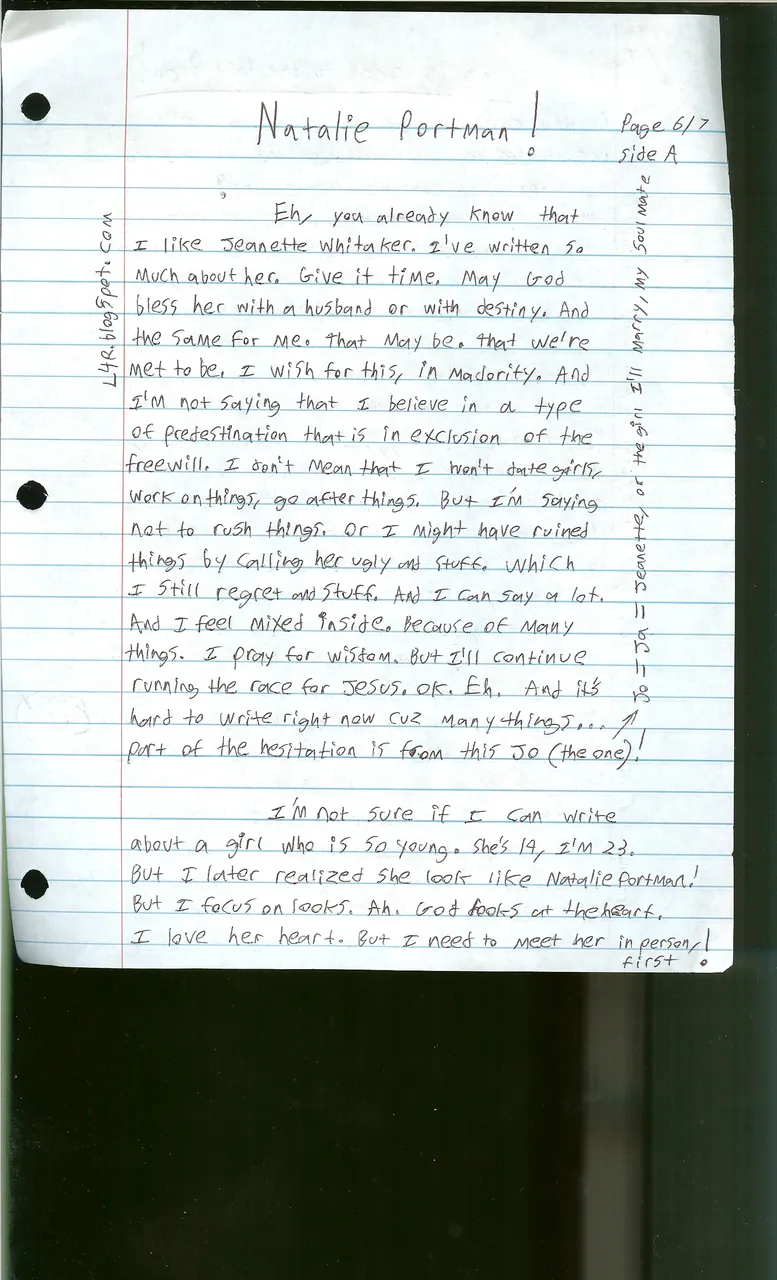 Natalie Portman!
Page 6/7
side A
Eh, you already know that
I like Jeanette Whitaker. I've written so
much about her. Give it time. May God
bless her with a husband or with destiny. And
the same for me. That may be. that we're
met to be. I wish for this, in madority. And
I'm not saying that I believe in a type
of predestination that is in exclusion of the
freewill. I don't mean that I won't date girls,
work on things, go after things. But I'm saying
not to rush things. Or I might have ruined
things by calling her ugly and stuff. Which
I still regret and stuff. And I can say a lot.
And I feel mixed inside. Because of many
things. I pray for wisdom. But I'll continue
running the race for Jesus. OK. Eh. And it's
hard to write right now cuz many things...
part of the hesitation is from this Jo (the one)!
I'm not sure if I can write
about a girl who is so young. She's 14, I'm 23.
But I later realized she look like Natalie Portman!
But I focus on looks. Ah. God looks at the heart.
I love her heart. But I need to meet her in person,
first!
L4R.blogspot.com
Jo = Ja = Jeanette, or the girl I'll Marry, my Soul Mate